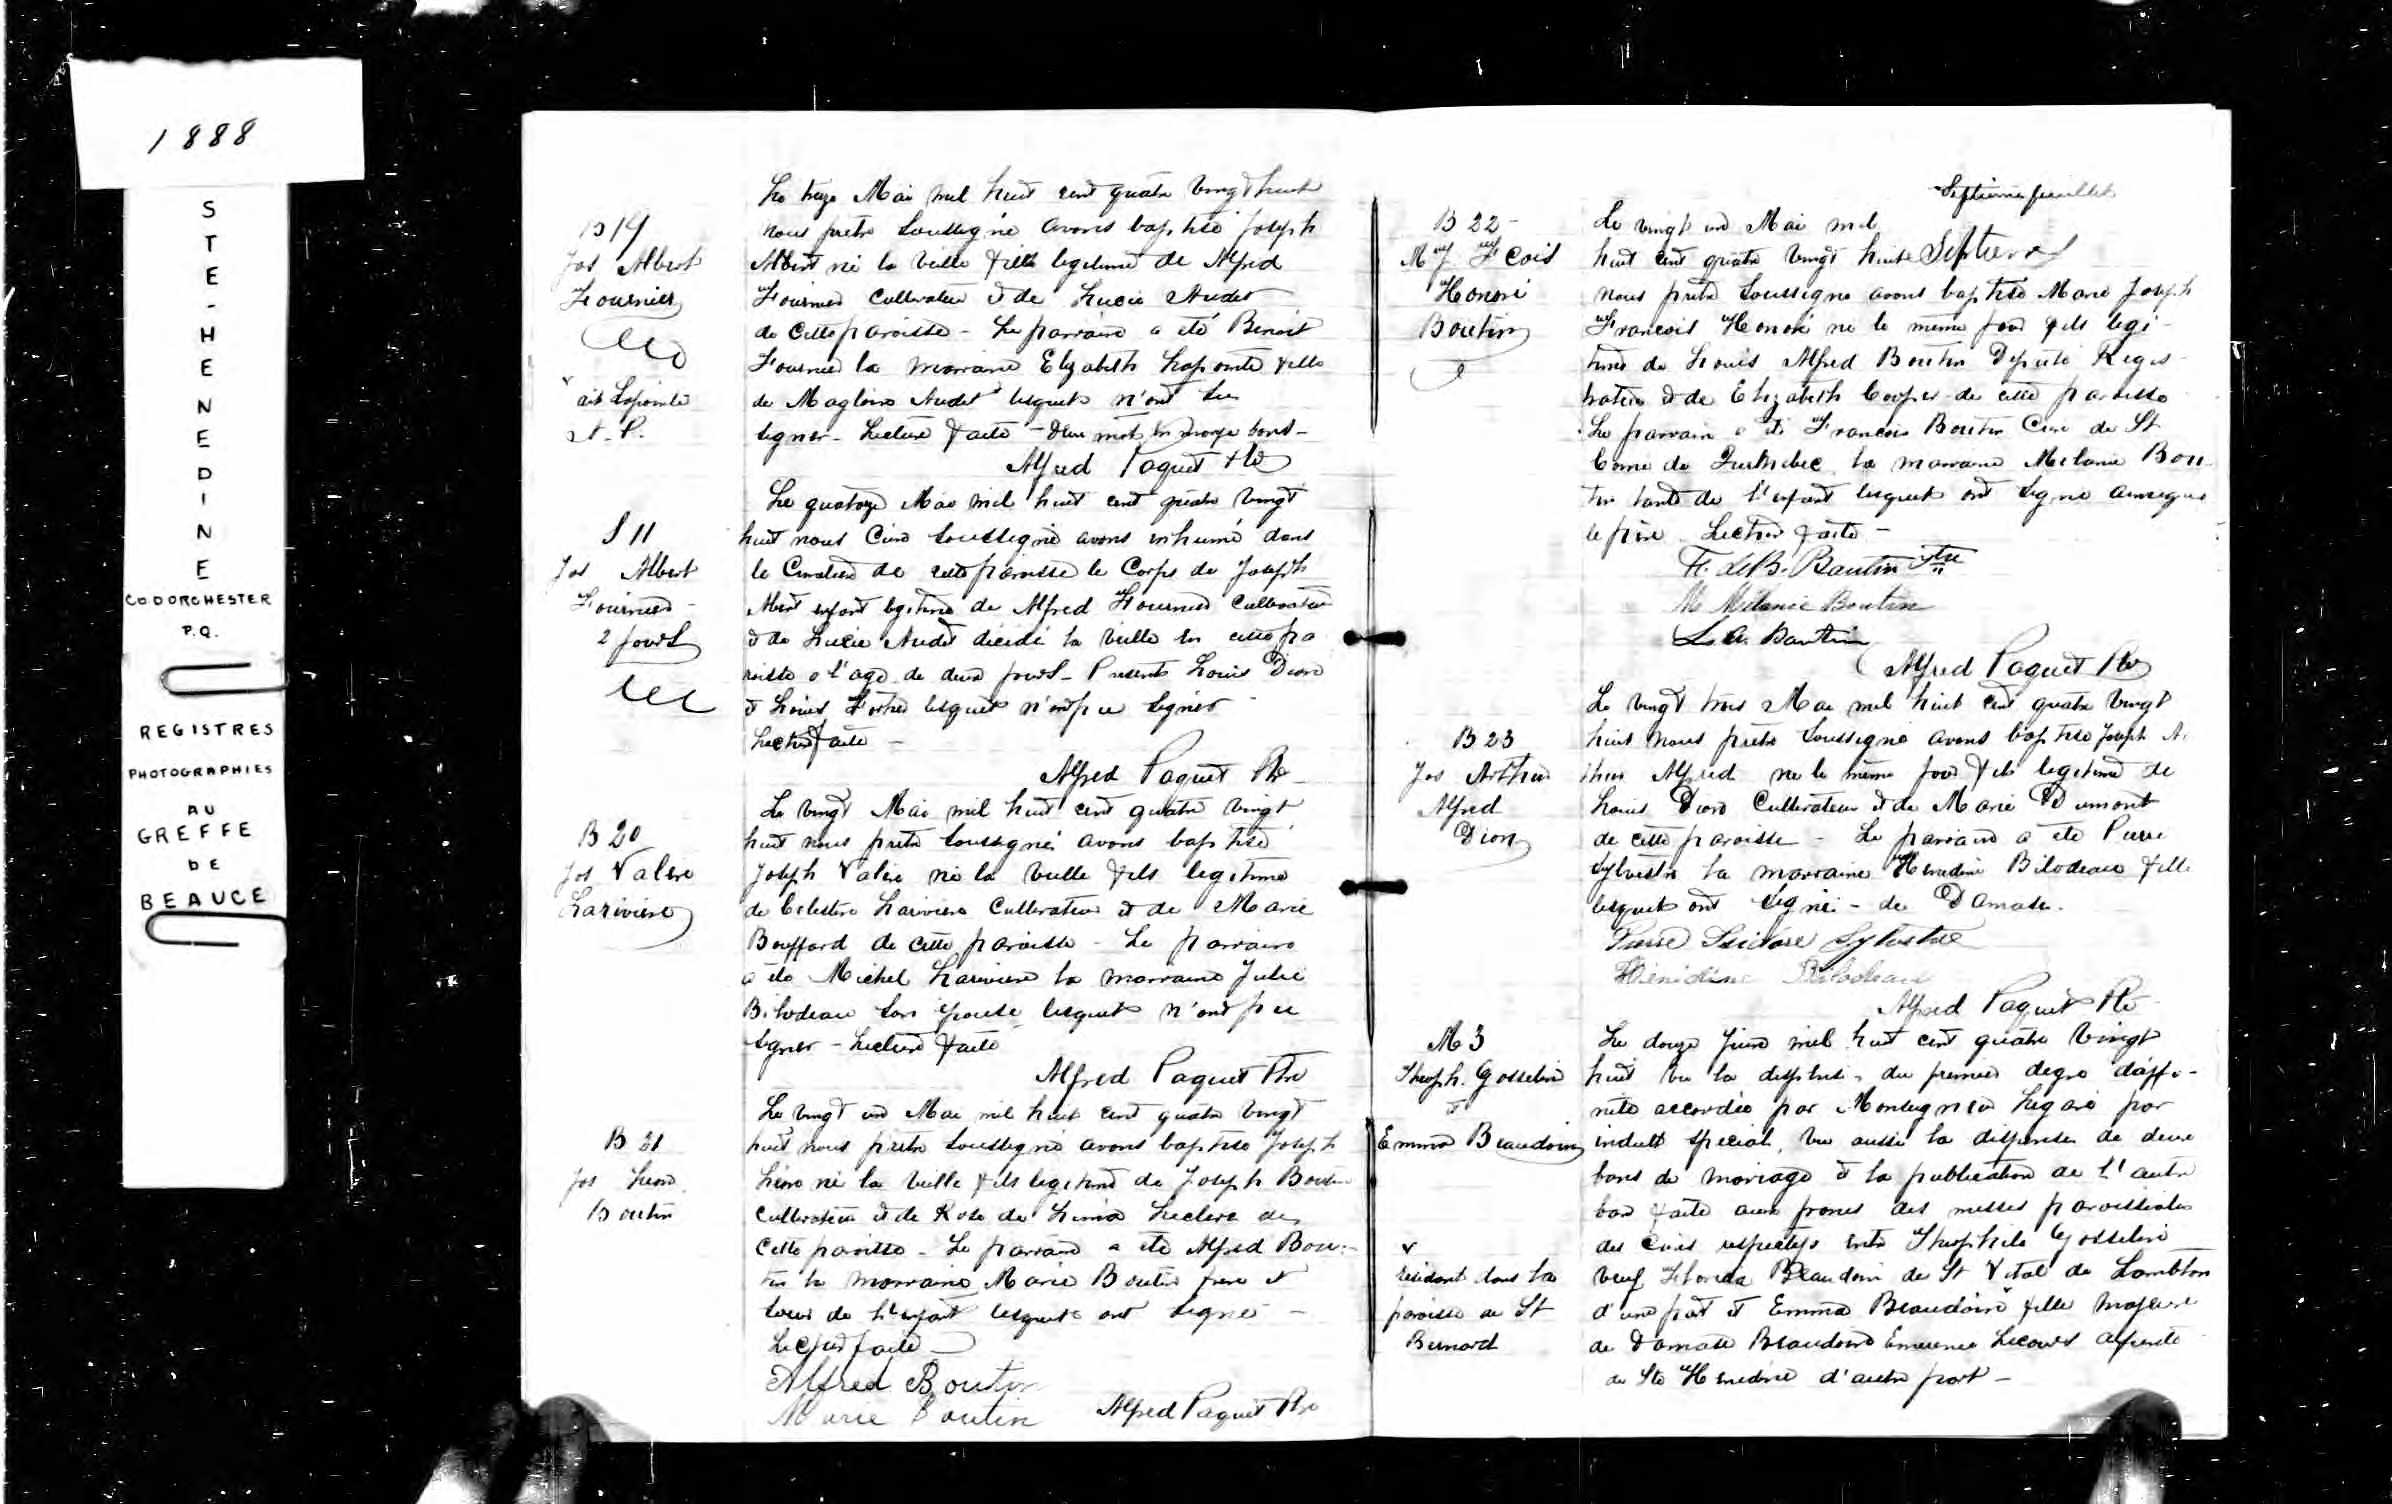 1888
STE-HENEDINE
CO DORCHESTER
P.Q.
REGISTRES
PHOTOGRAPHIES
AU
GREFFE
DE
BEAUCE
B 19
Jos Albert
Fournier
dit Lapointe
A. P.
Le treize Mai mil huit cent quatre vingt huit
nous prêtre soussigné avons baptisé Joseph
Albert né la veille fils legitime de Alfred
Fournier Cultivateur et de Lucie Audet
de cette paroisse - Le parrain a été Benoit
Fournier la marraine Elizabeth Lapointe fille
de Magloire Audet lesquels n'ont su
signer - Lecture faite - deux mots en marge bons -
Alfred Paquet Ptre
S 11
Jos Albert
Fournier -
2 jours
Le quatorze Mai mil huit cent quatre vingt
huit nous Curé soussigné avons inhumé dans
le Cimetière de cette paroisse le Corps de Joseph
Albert enfant legitime de Alfred Fournier Cultivateur
et de Lucie Audet décédé la veille en cette pa
roisse a l'age de deux jours - Presents Louis Dion
et Louis lesquels n'ont pu signer -
Lecture faite -
Alfred Paquet Ptre
B 20
Jos Valère
Larivière
Le vingt Mai mil huit cent quatre vingt
huit nous prêtre soussigné avons baptisé
Joseph Valère né la veille fils legitime
de Celestin Larivière Cultivateur et de Marie
Bouffard de cette paroisse - Le parrain
a été Michel Larivière la marraine Julie
Bilodeau son épouse lesquels n'ont pu
signer - Lecture faite
Alfred Paquet Ptre
B 21
Jos Léon
Boutin
Le vingt un Mai mil huit cent quatre vingt
huit nous prêtre soussigné avons baptisé Joseph
Léon né la veille fils legitime de Joseph Boutin
Cultivateur et de Rose de Lima Leclerc de
Cette paroisse - Le parrain a été Alfred Bou-
tin la marraine Marie Boutin frere et
soeur de l'enfant lesquels ont signé -
Lecture faite -
Alfred Boutin
Marie Boutin Alfred Paquet Ptre
Septième feuillet
B 22 -
Mrj Fcois
Honoré
Boutin
Le vingt un Mai mil
huit cent quatre vingt huit
nous prêtre soussigné avons baptisé Marie Joseph
Francois Honoré né le même jour fils legi-
time de Louis Alfred Boutin Député Régis-
trateur et de Elizabeth Cooper de cette paroisse
Le parrain a été Francois Boutin Curé de St
Come de Kennebec la marraine Melanie Bou-
tin tante de l'enfant lesquels ont signé ainsi que
le père Lecture faite -
F. de B. Boutin Ptre
M Mélanie Boutin
L. A. Boutin
Alfred Paquet Ptre
B 23
Jos Arthur
Alfred
Dion
Le vingt trois Mai mil huit cent quatre vingt
huit nous prêtre soussigné avons baptisé Joseph Ar
thur Alfred né le même jour fils legitime de
Louis Dion Cultivateur et de Marie Dumont
de cette paroisse - Le parrain a été Pierre
Sylvestre la marraine Henedine Bilodeau fille
lesquels ont signé - de Damase.
Pierre Isidore Sylvestre
Hénédine Bilodeau
Alfred Paquet Ptre
M 3
Theoph. Gosselin
et
Emma Beaudoin
résidant dans la
paroisse de St
Bernard
Le douze Juin mil huit cent quatre vingt
huit vu la dispense du premier degré d'affi-
nité accordée par Monseigneur Légaré par
indult special, vu aussi la dispense de deux
bans de mariage et la publication de l'autre
ban faite aux prones des messes paroissiales
des Curés respectifs entre Theophile Gosselin
veuf Florida Beaudoin de St Vital de Lambton
d'une part et Emma Beaudoin fille majeure
de Damase Beaudoin Emerence Lecours
de Ste Henedine d'autre part -